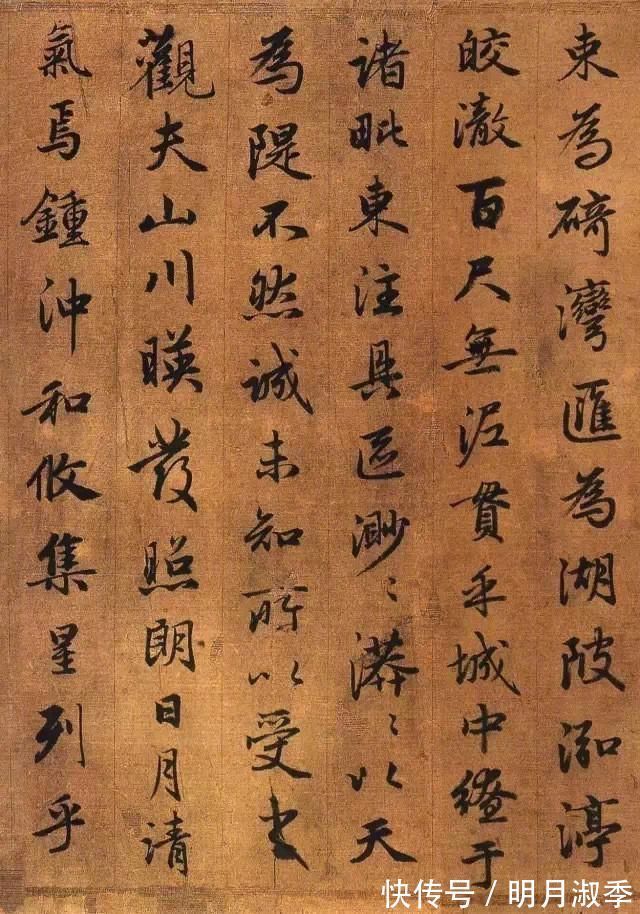 束為碕灣匯為湖陂泓渟
皎澈百尺無泥貫乎城中繚于
諸毗東注具區渺〻漭〻以天
為隄不然誠未知所以受之
觀夫山川暎發照朗日月清
氣焉鍾沖和攸集星列乎
快传号／明月淑季